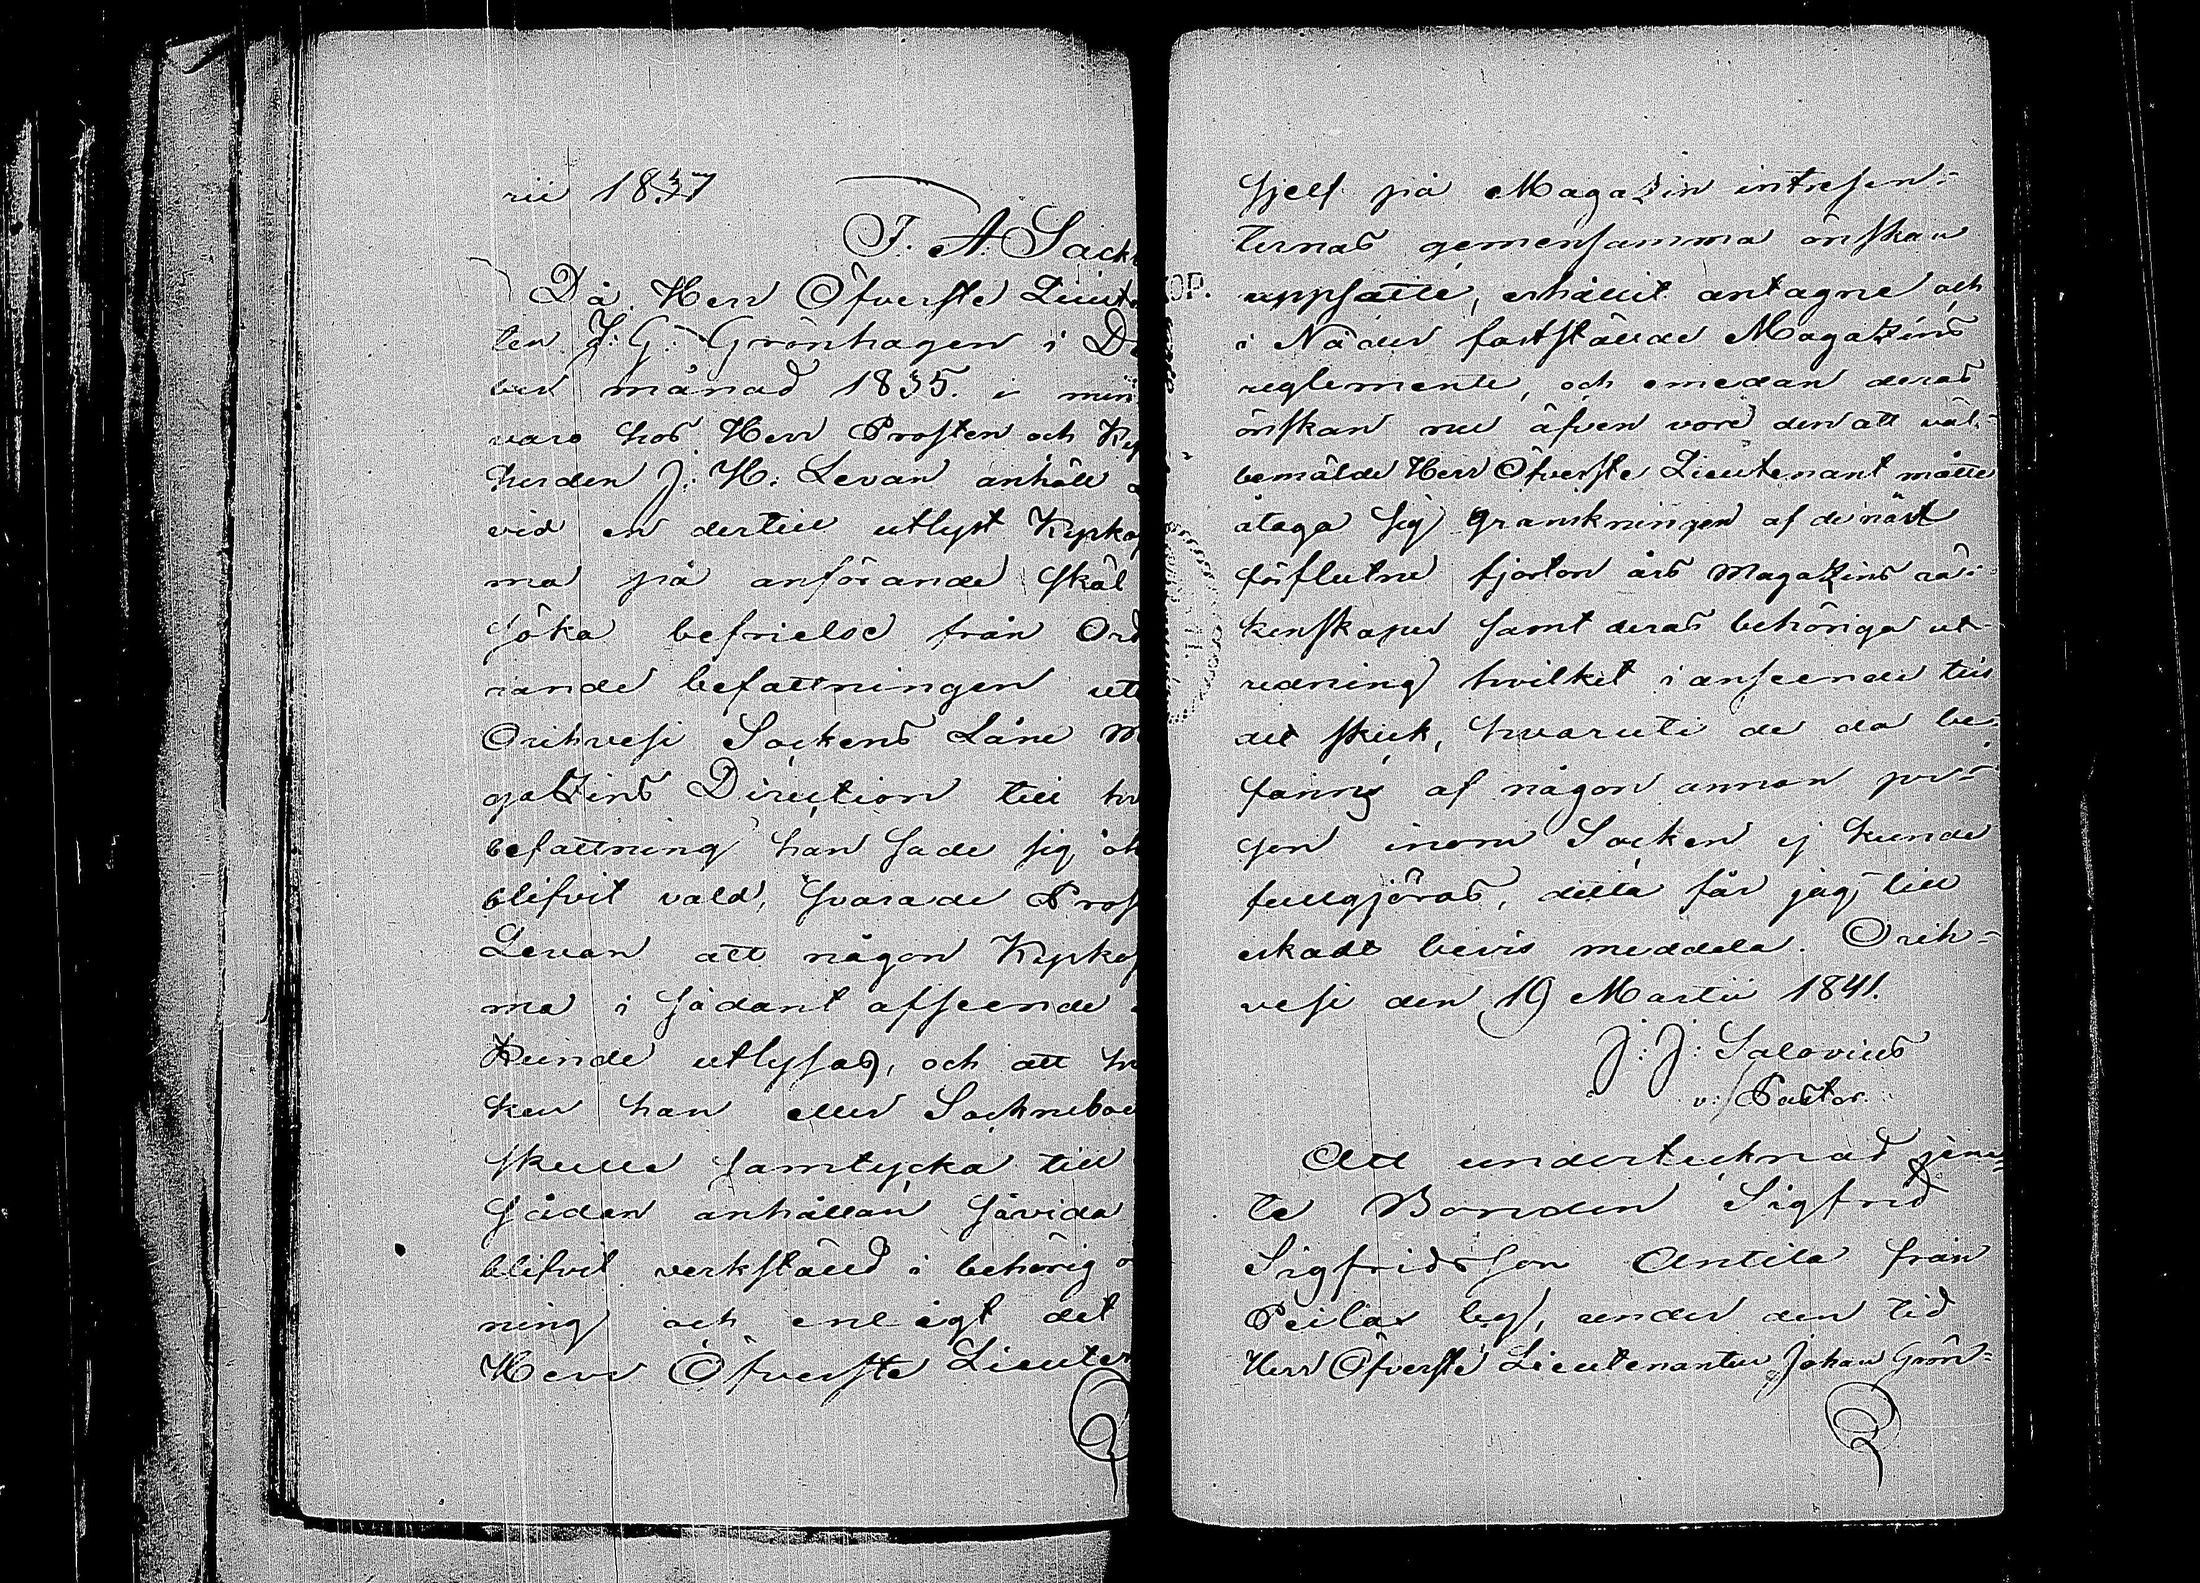 rii 1837
F. A. Sack
Då Herr Öfverste Lieut
ten J: G: Grönhagen i De
ber månad 1835. i min
varo hos Herr Prosten och Ky
herden J: H: Levan anhöll
vid en dertill utlyst Kyrko
ma på anförande skäl
söka befrielse från Ord
rande befattningen ut
Orihvesi Sockens Låne M
gazins Direction till hv
befattning han sade sig
blifvit vald, svarade Pros
Levan att någon Kyrkos
ma i sådant afseende
kunde utlysas, och att hv
ken han eller Sockneboe
skulle samtycka till
sådan anhållan såvida
blifvit verkstäld i behörig o
ning och enligt det
Herr Öfverste Lieuten
sjelf på Magazin intressen-
ternas gemensamma önskan
OP.
uppsatte, erhållit antagne och
i Nåder fastställde Magazins
reglemente, och emedan deras
önskan nu äfven vore den att väl-
bemälde Herr Öfverste Lieutenant måtte
åtaga sig granskningen af de näst
förflutne fjorton års Magazins rä-
kenskaper samt deras behöriga ut-
redning hvilket i anseende till
det skick, hvaruti de då be-
fanns af någon annan per-
son inom Socken ej kunde
fullgjöras, detta får jag till
eskadt bevis meddela. Orih-
vesi den 19 Martii 1841.
J: J: Salovius
v: Pastor.
Att undertecknad jem-
te Bonden Sigfrid
Sigfridsson Antila från
Peilax by, under den tid
Herr Öfverste Lieutenanten Johan Grön-